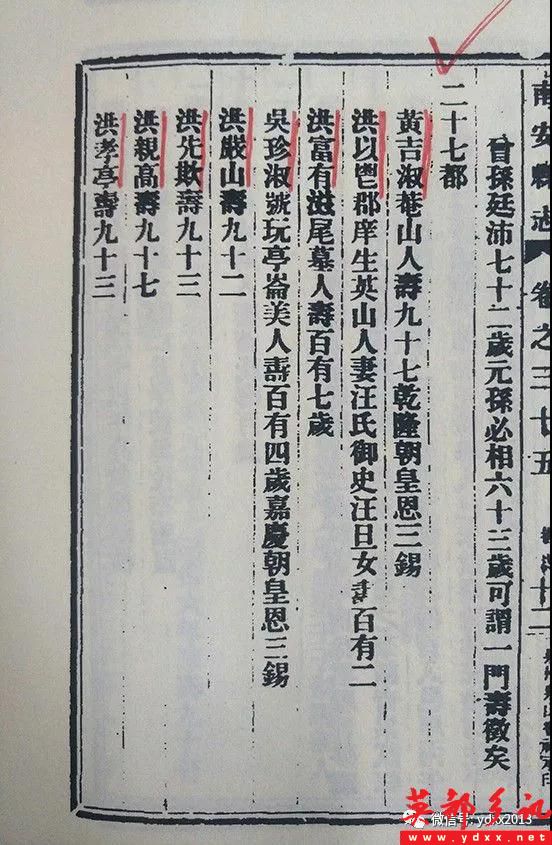 南安縣志 卷之三十五
曾孫廷沛七十二歲元孫必相六十三歲可謂一門壽徵矣
二十七都
黃吉淑菴山人壽九十七乾隆朝皇恩三錫
洪以鬯郡庠生英山人妻汪氏御史汪旦女壽百有二
洪富有滋尾墓人壽百有七歲
吳珍淑號玩亭崙美人壽百有四歲嘉慶朝皇恩三錫
洪嚴山壽九十二
洪先欺壽九十三
洪親高壽九十七
洪孝亭壽九十三
微信号: ydxx2013
英都乡讯
www.ydxx.net